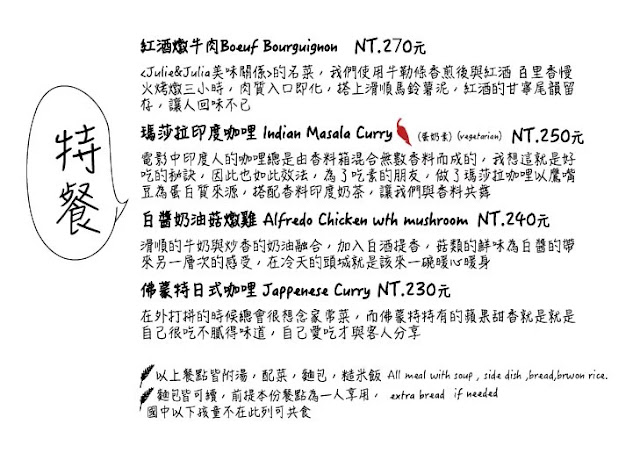 特餐
紅酒燉牛肉Boeuf Bourguignon NT.270元
<Julie&Julia美味關係>的名菜，我們使用牛勒條香煎後與紅酒 百里香慢
火烤燉三小時，肉質入口即化，搭上滑順馬鈴薯泥，紅酒的甘寧尾韻留
存，讓人回味不已
瑪莎拉印度咖哩 Indian Masala Curry (蛋奶素) (vegetarian) NT.250元
電影中印度人的咖哩總是由香料箱混合無數香料而成的，我想這就是好
吃的秘訣，因此也如此效法，為了吃素的朋友，做了瑪莎拉咖哩以鷹嘴
豆為蛋白質來源，搭配香料印度奶茶，讓我們與香料共舞
白醬奶油菇燉雞 Alfredo Chicken wth mushroom NT.240元
滑順的牛奶與炒香的奶油融合，加入白酒提香，菇類的鮮味為白醬的帶
來另一層次的感受，在冷天的頭城就是該來一碗暖心暖身
佛蒙特日式咖哩 Jappenese Curry NT.230元
在外打拼的時候總會很想念家常菜，而佛蒙特特有的蘋果甜香就是就是
自己很吃不膩得味道，自己愛吃才與客人分享
以上餐點皆附湯，配菜，麵包，糙米飯 All meal with soup , side dish ,bread,brwon rice.
麵包皆可續，前提本份餐點為一人享用， extra bread if needed
國中以下孩童不在此列可共食